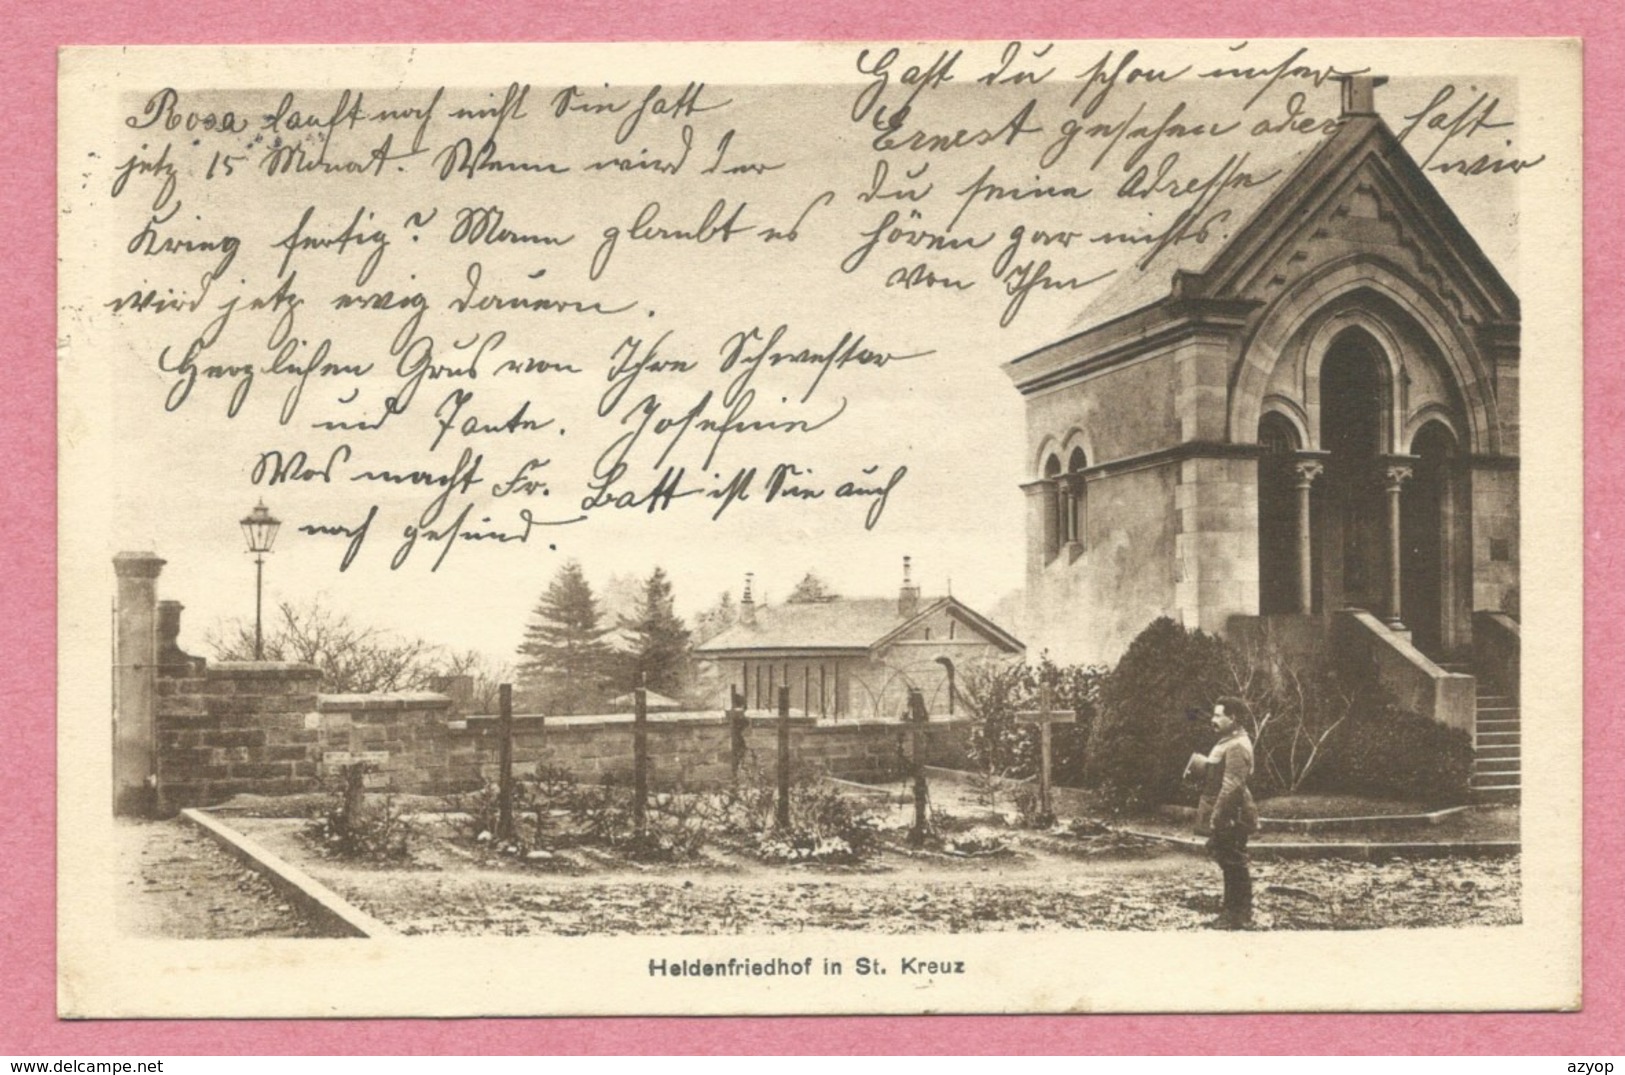 Rosa lauft noch nicht Sie hatt
jetz 15 Monat. Wenn wird der
Krieg fertig? Mann glaubt es
wird jetz ewig dauern.
Herzlichen Grus von Ihre Schwester
und Tante. Josefine
Was macht Fr. Batt ist Sie auch
noch gesund.
Hast du schon unser
Ernest gesehen oder hast
du seine Adresse wir
hören gar nichts.
von Ihm
Heldenfriedhof in St. Kreuz
azyop